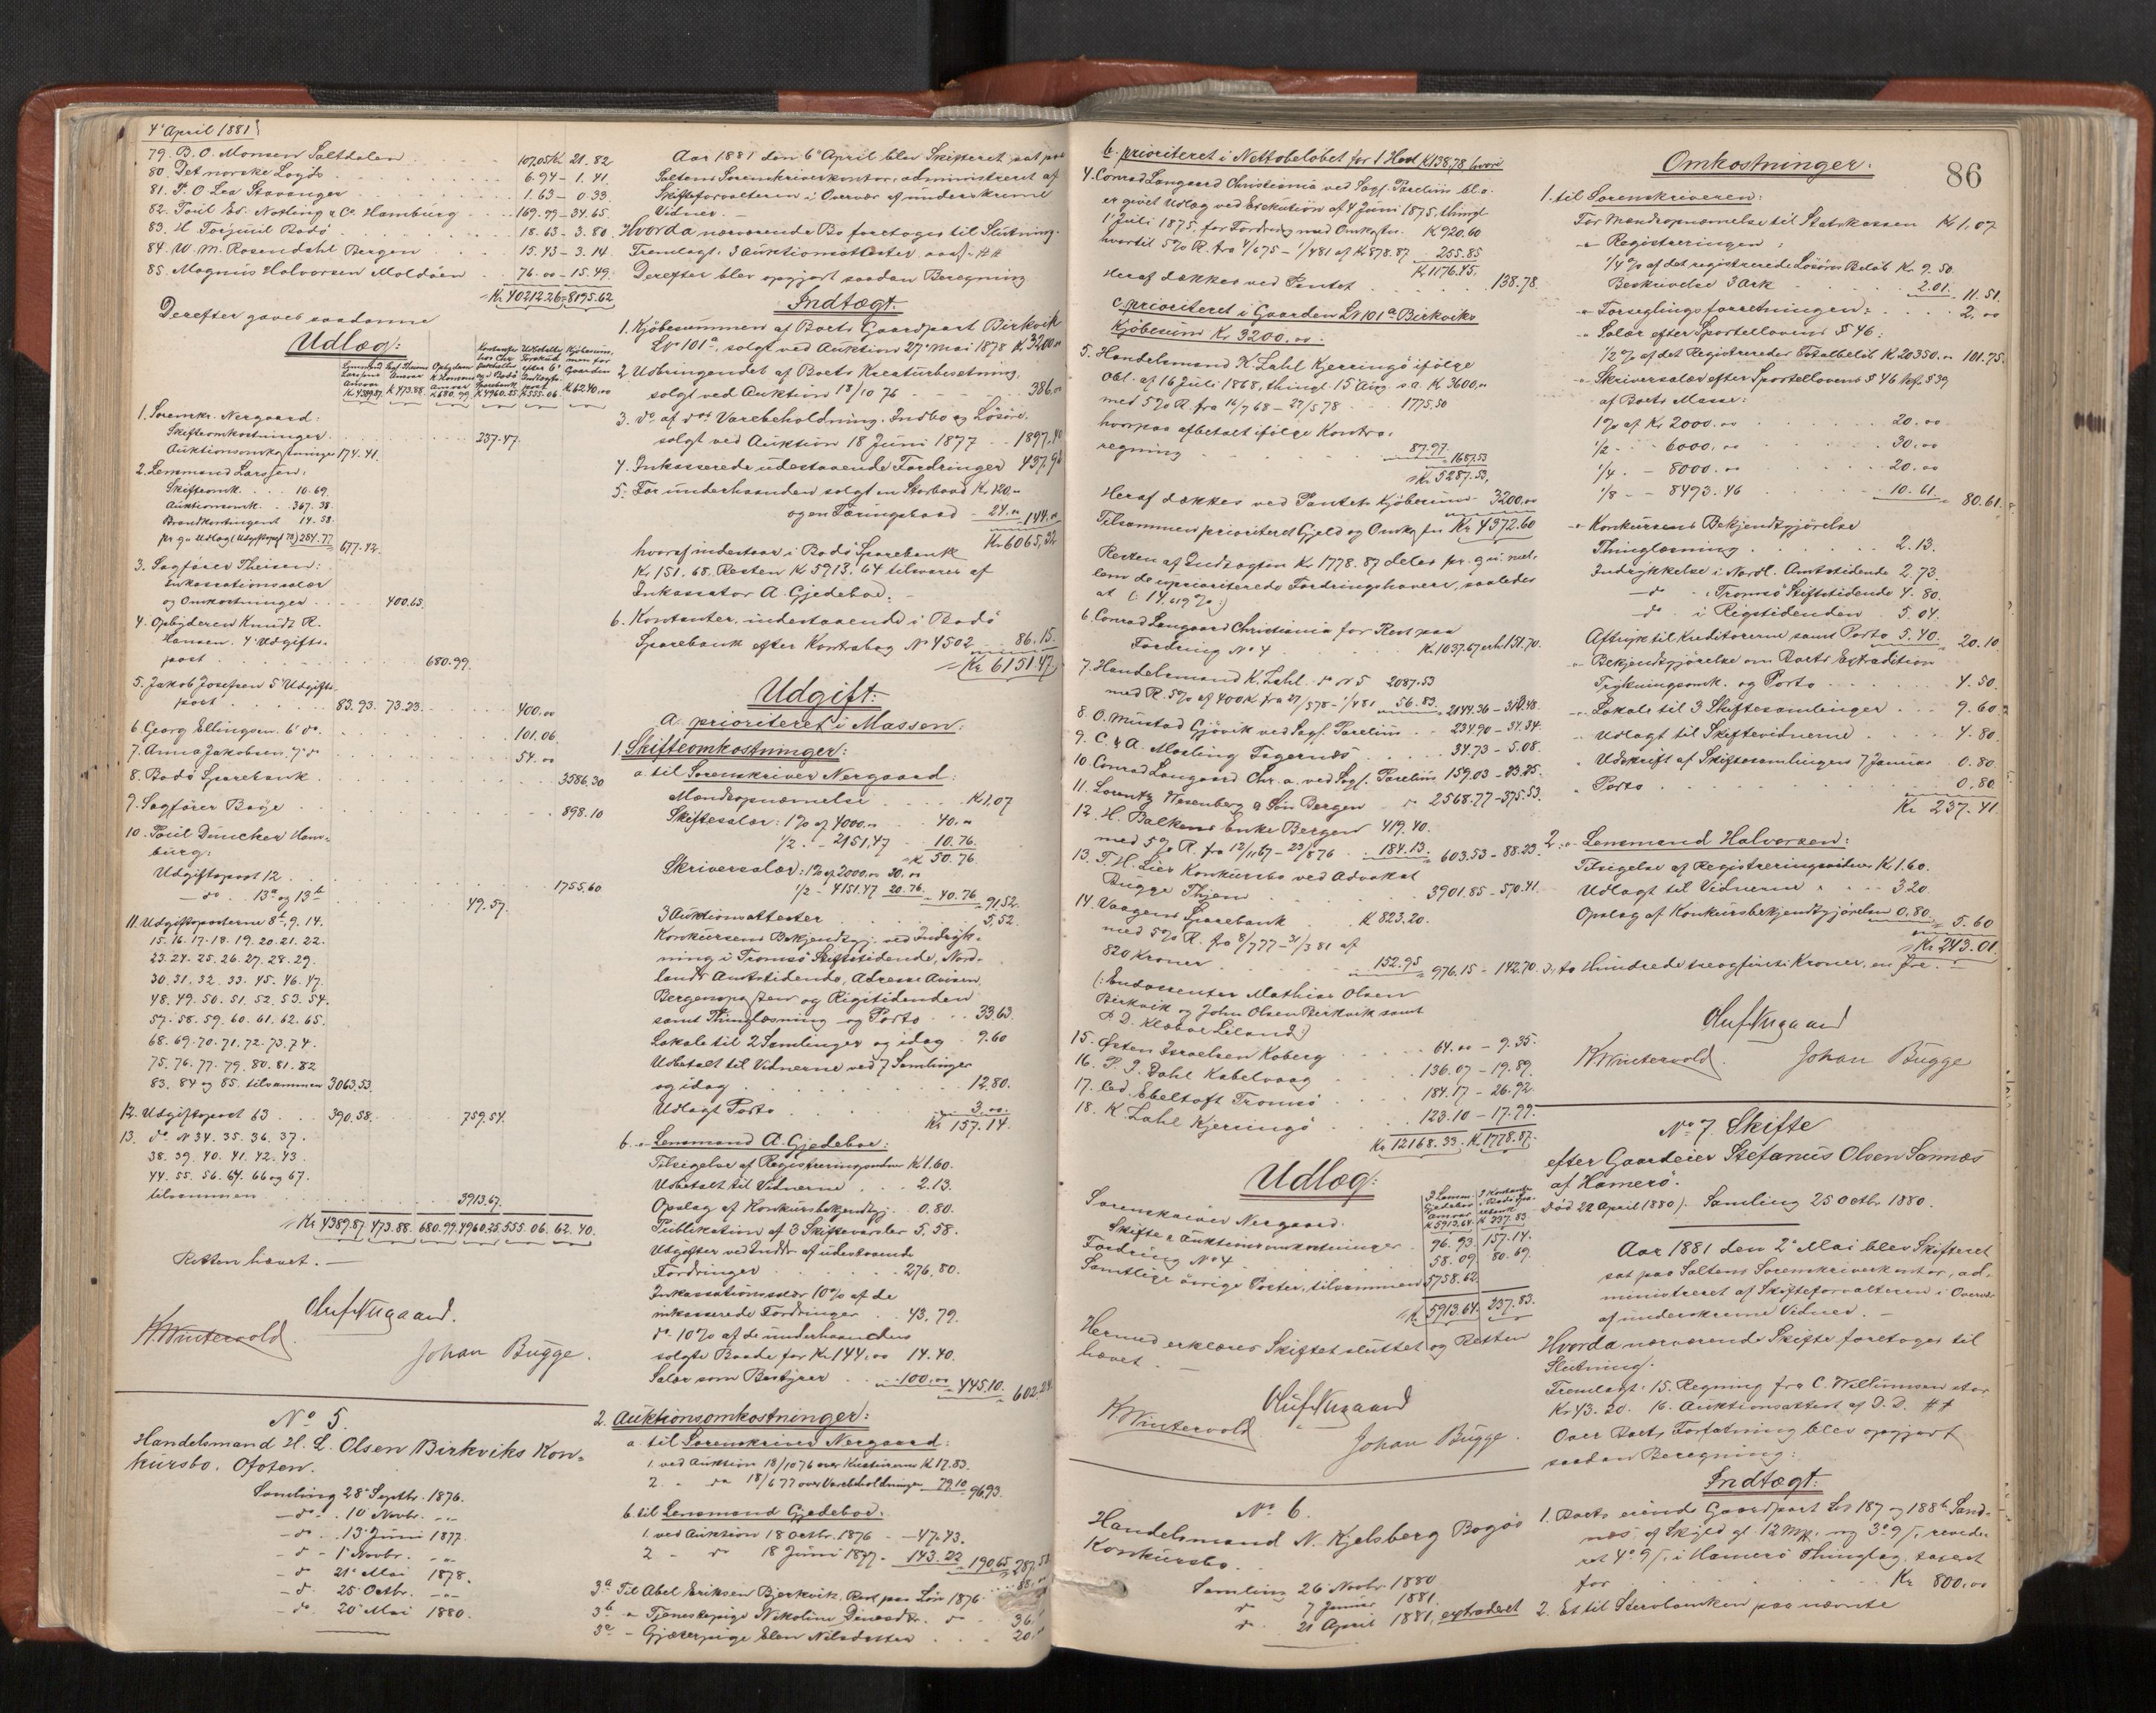 4' April 1881
79. B. O. Monsen Saltdalen 107.05 Kr 21.82
80. Det norske Lugø 6.94 - 1.41.
81. P. O Lea Stavanger 1.63 - 0.33.
82. Poul Ed. Nolting & Co. Hamburg 169.99 - 34.65.
83. H Torjuul Bodø 18.63 - 3.80.
84. W. M. Rosendahl Bergen 15.43 - 3.14.
85. Magnus Halvorsen Moldøen 76.00 - 15.49.
Kr. 40212.26 = 8195.62
Derefter gaves saadanne
Udlæg:
Lensmand Larssens Ansvar Kr 4389.87.
Sagf. Theisens Ansvar K 473.88.
Opbyderen K. Hansens Ansvar K 680.99.
K 4960.25.
K 555.06.
K 6240.00
1. Sorenskr. Nergaard:
Skifteomkostninger 237.47.
Auktionsomkostninger 174.41.
2. Lensmand Larssen:
Skifteomk. 10.69.
Auktionsomk. 367.38.
Brandkontingent 14.58.
pr q= Udlæg (Udgiftspost 78) 284.77
677.42.
3. Sagfører Theisen:
Inkassationssalær
og Omkostninger 400.65.
4. Opbyderen Knudt R.
Hansen. 4' Udgifts-
post 680.99.
5. Jakob Josefsen 5' Udgifts-
post 83.93. 73.23. 400.00
6. Georg Ellingsen. 6' do. 101.06.
7. Anna Jakobsen. 7' do 54.00
8. Bodø Sparebank 3586.30
9. Sagfører Bøge 898.10
10. Poul Duncker Ham-
burg:
Udgiftspost 12 1755.60
do. 13a og 13b 49.57.
11. Udgiftsposterne 8b, 9. 14.
15. 16. 17. 18. 19. 20. 21. 22.
23. 24. 25. 26. 27. 28. 29.
30. 31. 32. 33. 45. 46. 47.
48. 49. 50. 51. 52. 53. 54.
57. 58. 59. 60. 61. 62. 65.
68. 69. 70. 71. 72. 73. 74.
75. 76. 77. 79. 80. 81. 82
83. 84 og 85. tilsammen 3063.53.
12. Udgiftspost 63 390.58. 759.54.
13. do. N 34. 35. 36. 37.
38. 39. 40. 41. 42. 43.
44. 55. 56. 64. 66 og 67.
tilsammen 3913.67.
Kr 4389.87. 473.88. 680.99. 4960.25. 555.06. 62.40.
Retten hævet. —
Oluf Nergaard.
K. Wintervold.
Johan Bugge.
No 5.
Handelsmand H. L. Olsen Birkviks Kon-
kursbo. Ofoten.
Samling 28' Septbr. 1876.
— do. 10' Novbr. —
— do. 13' Juni 1877.
— do. 1' Novbr. —
— do 21' Mai 1878.
— do. 25' Octbr. —
— do. 20' Mai 1880.
Aar 1881 den 6' April blev Skifteret sat paa
Saltens Sorenskriverkontor, administreret af
Skifteforvalteren i Overvær af underskrevne
Vidner. —
Hvorda nærværende Bo foretoges til Slutning.
Fremlagt: 3 Auktionsattester
Derefter blev opgjort saadan Beregning
Indtægt.
1. Kjøbesummen af Boets Gaardpart Birkvik
L No 101a, solgt ved Auktion 27' Mai 1878 K 3200.00
2. Udbringendet af Boets Kreaturbesætning,
solgt ved Auktion 18/10 76 386.00
3. do af do Varebeholdning. Indbo og Løsøre,
solgt ved Auktion 18 Juni 1877 1897.40
4. Inkasserede udestaaende Fordringer 437.92
5. For underhaanden solgt en Storbaad Kr. 120.00
og en Færingsbaad - 24.00 144.00
Kr 6065.32
hvoraf indestaar i Bodø Sparebank
Kr 151.68. Resten K 5913.64 tilsvares af
Inkassator A. Gjedeboe. —
6. Kontanter, indestaaende i Bodø
Sparebank efter Kontrabog No 4502 86.15.
Kr. 6151.47
Udgift:
a. prioriteret i Massen.
1. Skifteomkostninger:
a. til Sorenskriver Nergaard:
Mandsopnævnelse K 1,07
Skiftesalær: 1% af 4000.00 40.00
1/2 - 2151.47 10.76.
K 50.76.
Skriversalær: 1% af 2000.00 20.00
1/2 - 4151.47 20.76. 40.76 91.52.
3 Auktionsattester 5.52.
Konkursens Bekjendtgj. ved Indryk-
ning i Tromsø Stiftstidende, Nord-
lands Amtstidende, Adresse Avisen,
Bergensposten og Rigstidenden
samt Thinglæsning og Porto 33.63.
Lokale til 2 Samlinger og idag 9.60
Udbetalt til Vidnerne ved 7 Samlinger
og idag 12.80.
Udlagt Porto 3.00.
Kr 157.14.
b. Lensmand A. Gjedeboe:
Tilsigelse af Registreringsvidner K 1.60.
Udbetalt til Vidnerne 2.13.
Opslag af Konkursbekjendtgj. 0.80.
Publikation af 3 Skiftevarsler 5.58.
Udgifter ved Inddr. af udestaaende
Fordringer 276,80.
Inkassationssalær 10% af de
inkasserede Fordringer 43.79.
do. 10% af de underhaanden
solgte Baade for Kr 144.00 14.40.
Salær som Bestyrer 100.00 445.10. 602.24
2. Auktionsomkostninger:
a. til Sorenskriver Nergaard:
1. ved Auktion 18/10 76 over Kreaturerne K 17.83.
2. do 18/6 77 over Varebeholdningen 79.10 96.93.
b. til Lensmand Gjedeboe:
1. ved Auktion 18 Octbr. 1876 47.43.
2. do 18 Juni 1877. 143.22 190.65 287.58
3a Til Abel Eriksen Bjerkvik, Rest paa Løn 1876 88.
3b Tjenestepige Nikoline 36.
3c Gjæterpige Elen Nilsdatter 20.
86
b. prioriteret i Nettobeløbet for 1 Hest K 138.78, hvori
4. Conrad Langaard Christiania ved Sagf. Parelius bl. a.
er givet Udlæg ved Exekution af 4 Juni 1875, thingl.
1' Juli 1875, for Fordring med Omkostn. K 920.60
hvortil 5% R. fra 4/6 75 - 1/4 81 af K 878.87 255.85
Kr 1176.45.
Heraf dækkes ved Pantet 138.78.
c. prioriteret i Gaarden L No 101a Birkviks
Kjøbesum Kr. 3200.00:
5. Handelsmand K. Zahl Kjerringø ifølge
Obl. af 16 Juli 1868, thingl. 15 Aug. s. a. K. 3600,00
med 5% R. fra 16/7 68 - 27/5 78 1775.50
hvorpaa afbetalt ifølge Kontra-
regning 87.97. 1687.53
Kr. 5287.53,
Heraf dækkes ved Pantets Kjøbesum 3200.00
Tilsammen prioriteret Gjeld og Omkostn. Kr 4372.60
Resten af Indtægten Kr. 1778.87 deles pr. q. ú. mel-
lem de uprioriterede Fordringshavere, saaledes
at (: 14,619 %:)
6. Conrad Langaard Christiania for Rest paa
Fordring No 4 Kr. 1037.67 erh. 151.70.
7. Handelsmand K. Zahl do No 5 2087.53
med R. 5% af 400 K fra 27/5 78 - 1/4 81 56.83 2144.36 - 313.48.
8. O. Mustad Gjøvik ved Sagf. Parelius 234.90 - 34.34.
9. C. & A. Morling Tegernæs 34.73 - 5.08.
10. Conrad Langaard Chr. a. ved Sagf. Parelius 159.03 - 23.25.
11. Lorentz Wesenberg & Søn Bergen do 2568.77 - 375.53.
12. H. Balkens Enke Bergen 419.40.
med 5% R. fra 12/11 67 - 23/8 76 184.13. 603.53 - 88.23.
13. T. H. Lies Konkursbo ved Advokat
Bugge Thjem 3901.85 - 570.41.
14. Vaagens Sparebank K 823.20.
med 5% R. fra 8/7 77 - 31/3 81 af
820 Kroner 152.95 976.15 - 142.70.
(: Endossenter Mathias Olsen
Birkvik og John Olsen Birkvik samt
P. D. Kløboe Leland:)
15. Østen Israelsen Koberg 64.00 - 9.35.
16. P. J. Dahl Kabelvaag 136.07 - 19.89.
17. Ced. Ebeltoft Tromsø 184.17 - 26.92.
18. K. Zahl Kjerringø 123.10 - 17.99.
Kr. 12168.33. K. 1778.87.
Udlæg:
I Lensm. Gjedeboes Ansvar K 5913.64.
I Kontanter i Bodø Spa-rebank K 237.83
Sorenskriver Nergaard:
Skifte & Auktionsomkostninger 96.93. 157.14.
Fordring No 4 58.09. 80.69.
Samtlige øvrige Poster, tilsammen 5758.62.
K. 5913.64. 237.83.
Hermed erklæres Skiftet sluttet og Retten
hævet. —
Oluf Nergaard
K. Wintervold.
Johan Bugge.
No 6.
Handelsmand N. Kjelsberg Bogøs
Konkursbo.
Samling 26 Novbr. 1880
do 7 Januar 1881.
do. 21 April 1881, extraderet
Omkostninger:
1. til Sorenskriveren:
For Mandsopnævnelse til Statskassen K 1,07
" Registreringen:
1/4 % af det registrerede Løsøres Beløb Kr. 9.50.
Beskrivelse 3 Ark 2.01. 11.51.
" Forseglingsforretningen: 2.00
" Salær efter Sportellovens § 46:
1/2 % af det Registreredes Totalbeløb K 20350.00 101.75.
" Skriversalær efter Sportellovens § 46 jvf. § 39
af Boets Masse:
1% af Kr 2000.00 20.00
1/2 - - 6000.00 30.00
1/4 - - 8000.00 20.00
1/8 - - 8493.46 10.61 80.61.
" Konkursens Bekjendtgjørelse
Thinglæsning 2.13.
Indrykkelse i Nordl. Amtstidende 2.73.
— do i Tromsø Stiftstidende 4.80.
— do. i Rigstidenden 5.04.
Aftryk til Kreditorerne samt Porto 5.40. 20.10
" Bekjendtgjørelse om Boets Extradition
Trykningsomk. og Porto 4.50.
" Lokale til 3 Skiftesamlinger 9.60
" Udlagt til Skiftevidnerne 4.80.
" Udskrift af Skiftesamlingen 7 Januar 0.80.
" Porto 0.80.
Kr. 237.41.
2. Lensmand Halvorsen:
Tilsigelse af Registreringsvidner K 1.60.
Udlagt til Vidnerne 3.20.
Opslag af Konkursbekjendtgjørelsen 0.80 5.60
Kr. 243.01.
to Hundrede treogfirti Kroner, en Øre. —
Oluf Nergaard
K. Wintervold.
Johan Bugge
No 7. Skifte
efter Gaardeier Stefanus Olsen Sannæs
af Hamerø.
(død 22 April 1880). Samling 25 Octbr. 1880.
Aar 1881 den 2' Mai blev Skifteret
sat paa Saltens Sorenskriverkontor, ad-
ministreret af Skifteforvalteren i Overvær
af underskrevne Vidner. —
Hvorda nærværende Skifte foretoges til
Slutning.
Fremlagt: 15. Regning fra C. Willumsen stor
Kr 43.20. 16. Auktionsattest af D. D.
Over Boets Forfatning blev opgjort
saadan Beregning:
Indtægt:
1. Boets eiende Gaardpart L No 187 og 188b Sand-
næs, af Skyld gl. 12 Mk. ny 3. 9 ß, revide-
ret 4. 9 ß, i Hamerø Thinglag, taxeret
for Kr 800.00
2. Et til Stervboenken paa nævnte